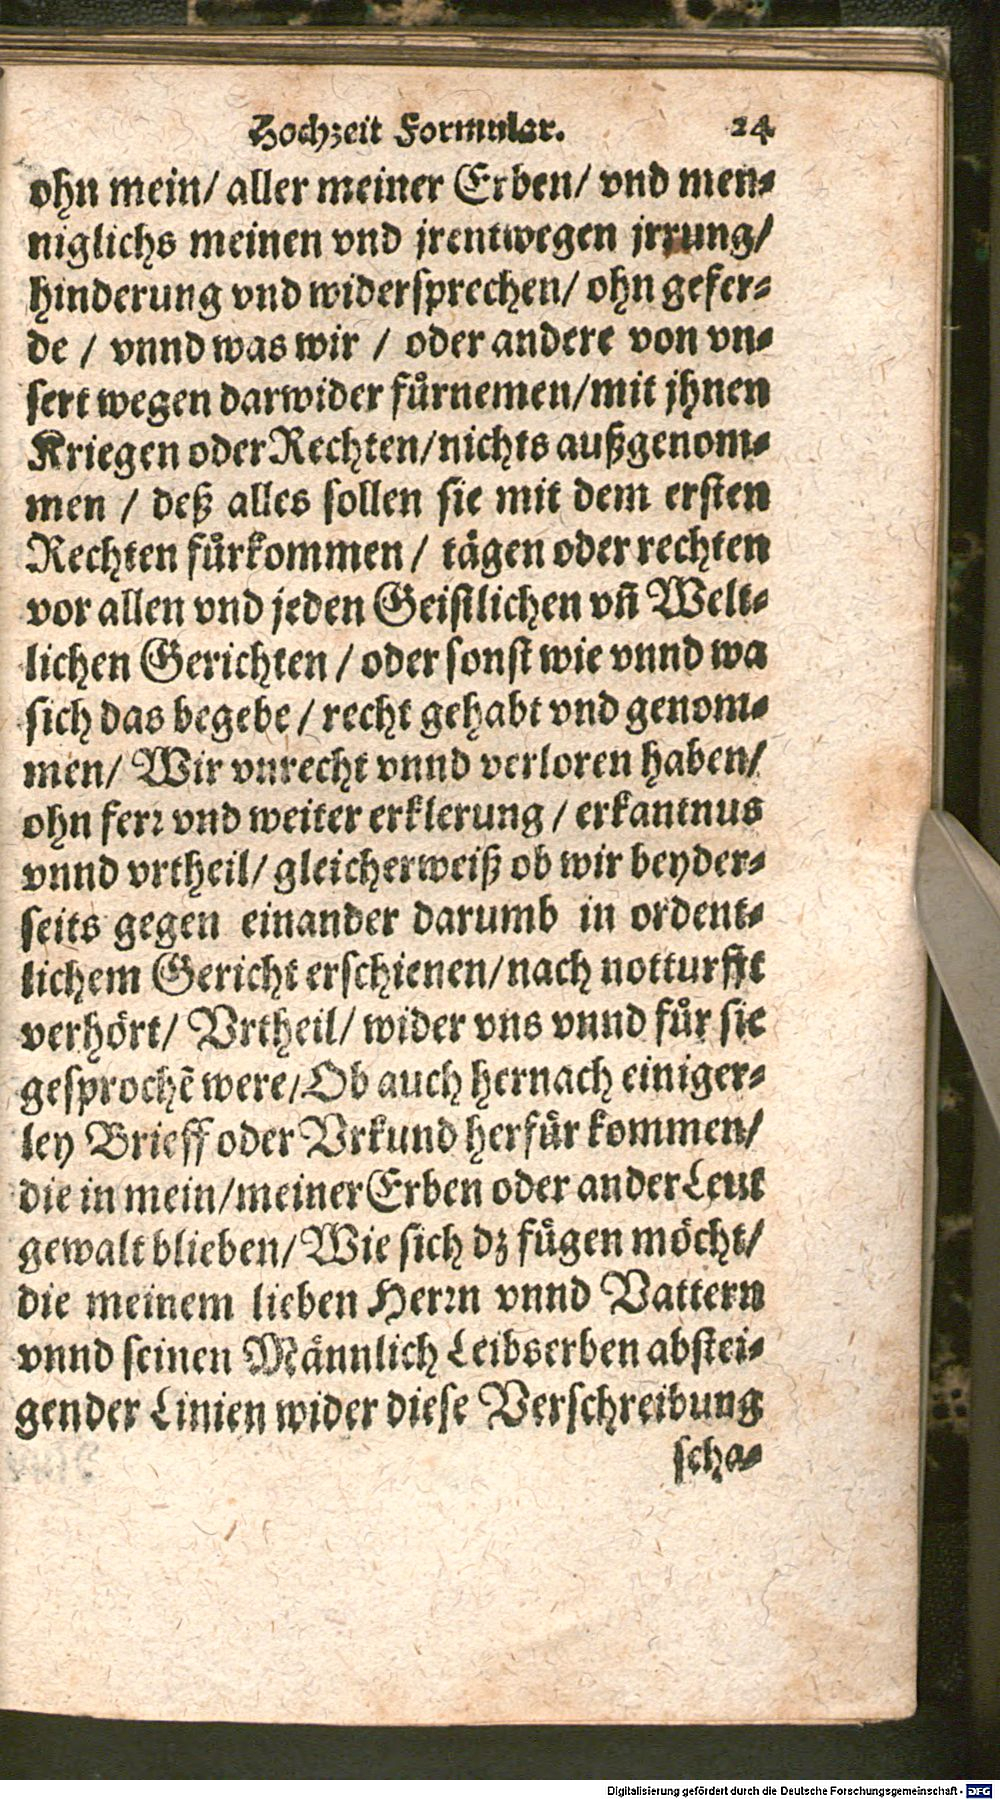 Hochzeit Formular. 24
ohn mein/ aller meiner Erben/ vnd men⸗
niglichs meinen vnd jrentwegen jrrung/
hinderung vnd widersprechen/ ohn gefer⸗
de / vnnd was wir / oder andere von vn⸗
sert wegen darwider fuͤrnemen/mit jhnen
Kriegen oder Rechten/nichts außgenom⸗
men / deß alles sollen sie mit dem ersten
Rechten fuͤrkommen / taͤgen oder rechten
vor allen vnd jeden Geistlichen vñ Welt⸗
lichen Gerichten / oder sonst wie vnnd wa
sich das begebe / recht gehabt vnd genom⸗
men/ Wir vnrecht vnnd verloren haben/
ohn ferꝛ vnd weiter erklerung / erkantnus
vnnd vrtheil/ gleicherweiß ob wir beyder⸗
seits gegen einander darumb in ordent⸗
lichem Gericht erschienen/nach notturfft
verhoͤrt/ Vrtheil/ wider vns vnnd fuͤr sie
gesprochẽ were/Ob auch hernach einiger⸗
ley Brieff oder Vrkund herfuͤr kommen/
die in mein/meiner Erben oder ander Leut
gewalt blieben/ Wie sich dz fuͤgen moͤcht/
die meinem lieben Herꝛn vnnd Vattern
vnnd seinen Maͤnnlich Leibserben abstei⸗
gender Linien wider diese Verschreibung
scha⸗
Digitalisierung gefördert durch die Deutsche Forschungsgemeinschaft - DFG